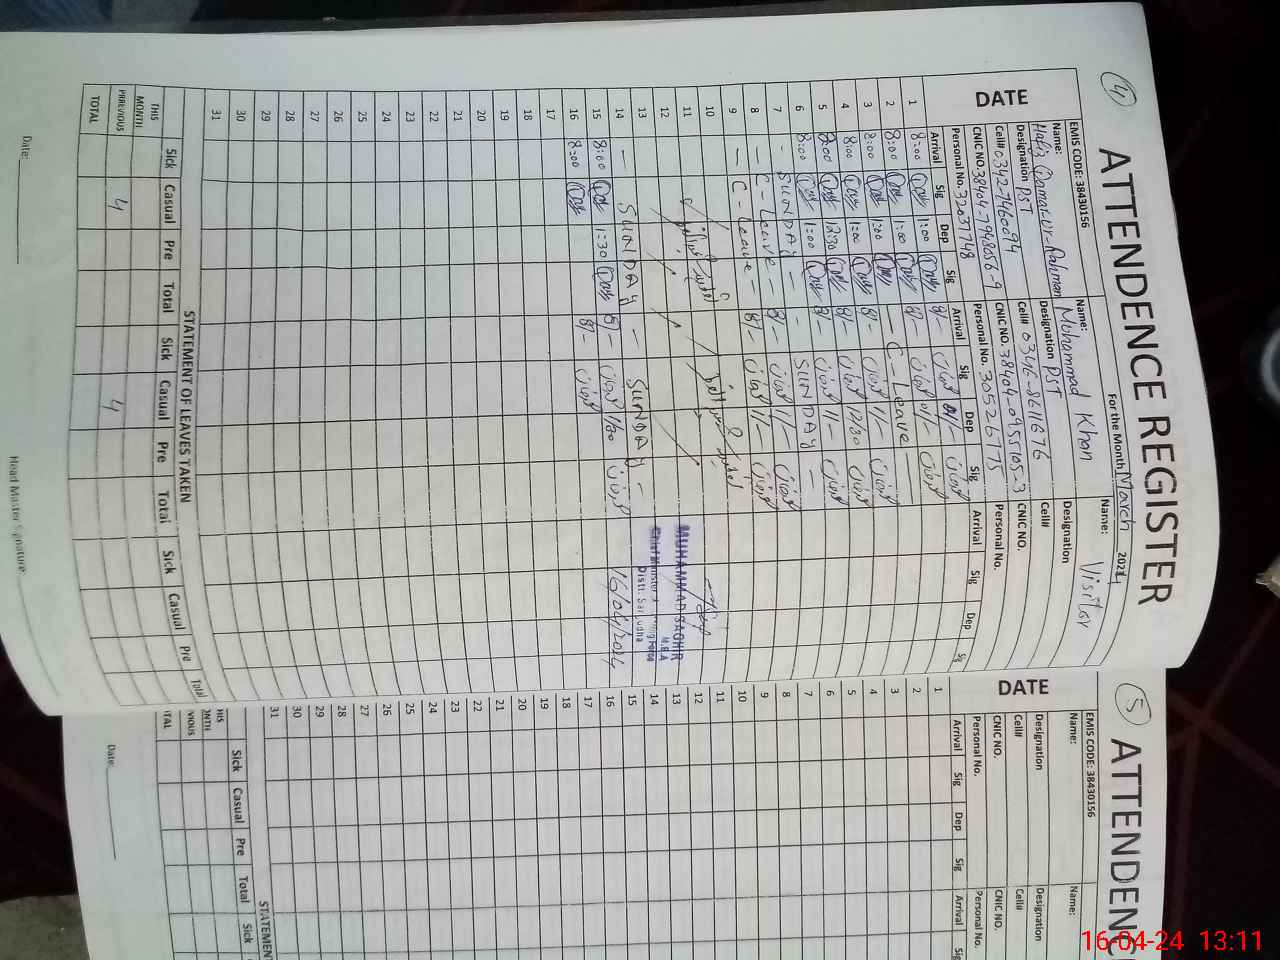 4
ATTENDENCE REGISTER
For the Month March 2024
EMIS CODE: 38430156
DATE
Name: Hafiz Qamar-ur-Rahman
Designation PST
Cell# 0342-7460094
CNIC NO. 38404-7998056-9
Personal No. 32037748
Name: Muhammad Khan
Designation PST
Cell# 0346-8611676
CNIC NO. 38404-0955105-3
Personal No. 30526775
Name: Visiter
Designation
Cell#
CNIC NO.
Personal No.
Arrival Sig Dep Sig Arrival Sig Dep Sig Arrival Sig Dep Sig
1 8:00 1:00 8/-
2 8:00 1:00 8/- 01/-
3 8:00 1:00 - C-Leave
4 8:00 1:00 8/- 1/-
5 8:00 12:30 8/- 12/30
6 8:00 1:00 8/- 11/-
7 - SUNDAY - - SUNDAY -
8 - C-Leave - 8/- 1/-
9 - C-Leave - 8/- 1/-
10
11
12
13
14 - SUNDAY - SUNDAY -
15 8:00 1:30 8/- 1/30
16 8:00 8/-
17
18
19
20
21
22
23
24
25
26
27
28
29
30
31
MUHAMMAD SAGHIR
M.B.A
Distt. Sargodha
16/04/2024
STATEMENT OF LEAVES TAKEN
Sick Casual Pre Total Sick Casual Pre Total Sick Casual Pre Total
THIS MONTH
PREVIOUS 4 4
TOTAL
Date:
Head Master Signature:
5
ATTENDENC
EMIS CODE: 38430156
DATE
Name:
Designation
Cell#
CNIC NO.
Personal No.
Name:
Designation
Cell#
CNIC NO.
Personal No.
Arrival Sig Dep Sig Arrival Sig
1
2
3
4
5
6
7
8
9
10
11
12
13
14
15
16
17
18
19
20
21
22
23
24
25
26
27
28
29
30
31
STATEMENT
Sick Casual Pre Total Sick
HIS
ONTH
VIOUS
TAL
Date:
16-04-24 13:11